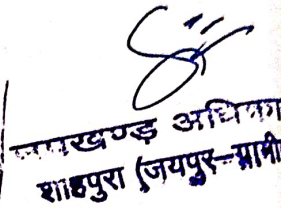 उपखण्ड अधिका
शाहपुरा (जयपुर-ग्रामी